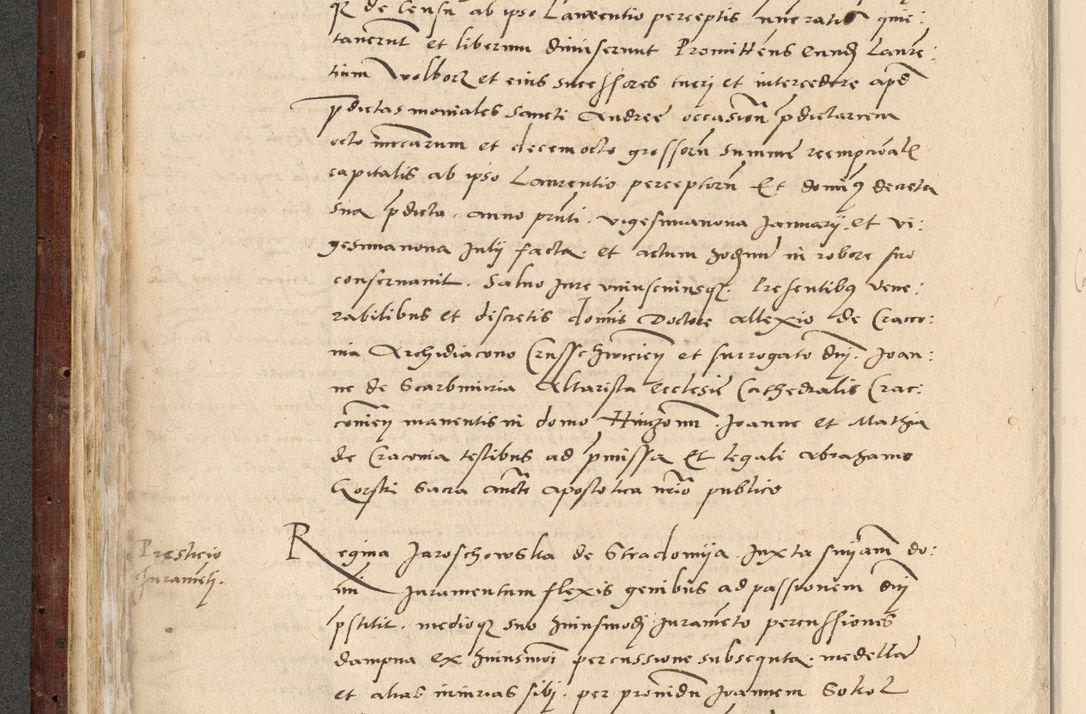 qz de censu ab ipso Laurentio perceptis numeratis quie:
taverunt et liberum dimiserunt Promittens eund Laure:
tium Wolborz et eius successores tueri et intercedere aped
pdictas moniales Sancti Andree occasion pdictarum
octo mcarum et decemocto grossoru summe reempcioal
capitalis ab ipso Laurentio perceptoru Et domi9 decreta
sua pdicta . anno pnti . vigesimanona Januarij et vi:
gesimanona Julij facta . et actum hodnu in robore suo
conservavit . Salvo jure uniuscuiusqz . Presentib9 vene:
rabilibus et discretis domis Doctore Allexio de Craco:
via Archidiacono Crusschwicien et surrogato dni . Joan:
ne de Scarbimiria Altarista ecclesie Cathedralis Crac:
coвien manentis in domo Joanne et Mathia
de Cracovia testibus ad pmissa Et legali Abrahamo
Gorski Sacra aucte apostolica nrio publico
Presticio
Juramēti.
Regina Jaroschowska de Stradomija . Juxta snijam do:
mi Juramentum flexis genibus ad passionem dni
pstitit . medioqz suo huiusmodi Juramēto percussiones
dampna ex huiusmoi percussione subsequta . medella
et alias iniurias sibi . per providu Joannem Sokol